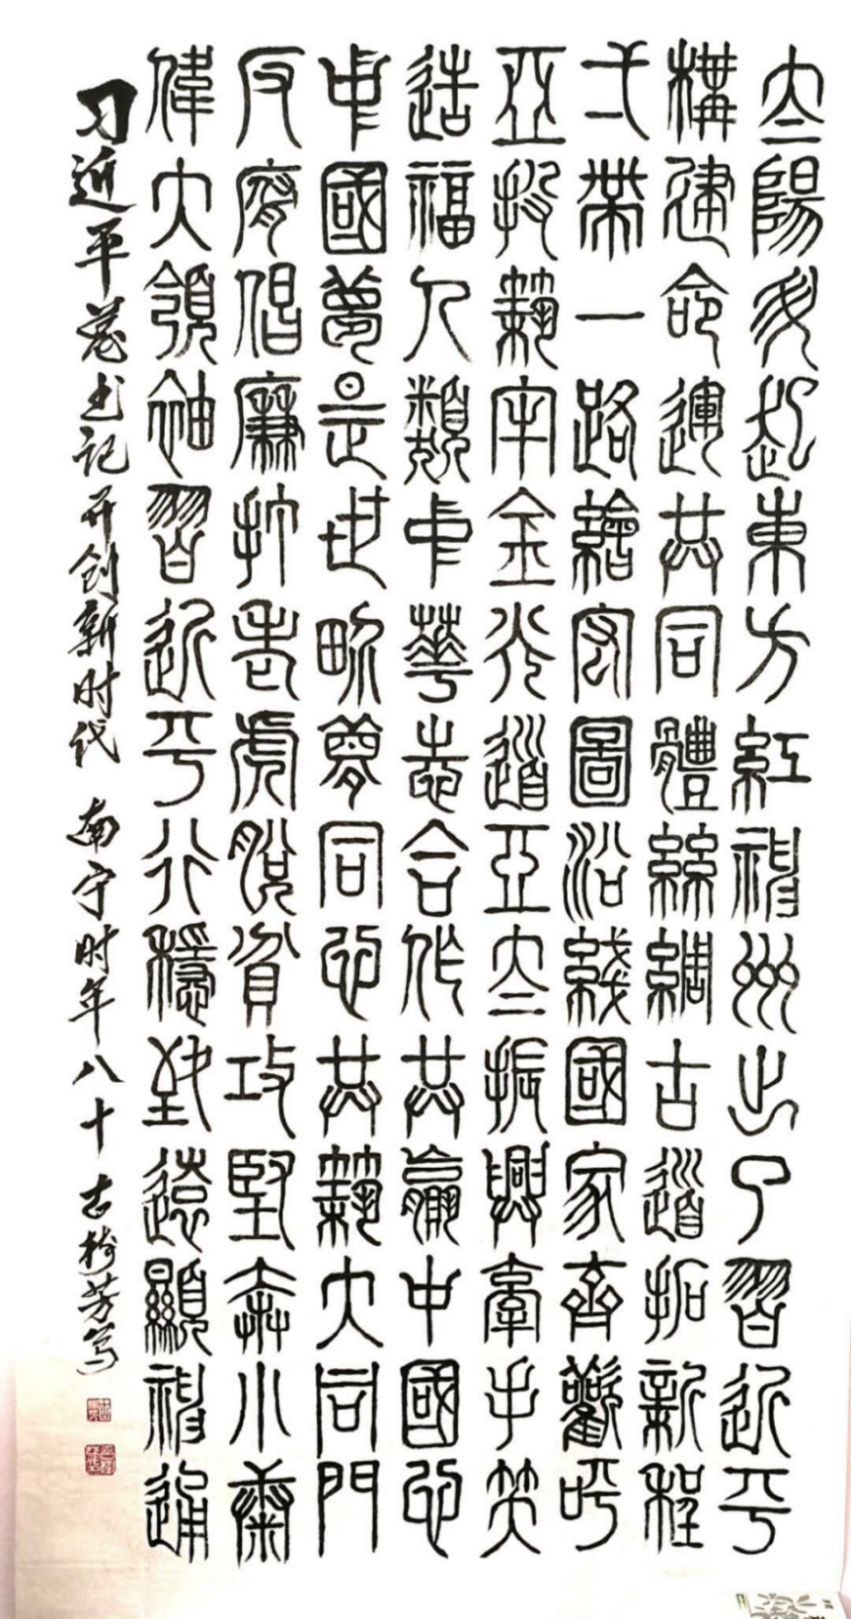 太陽升起東方紅神州出了習近平
構建命運共同體絲綢古道拓新程
弌帶一路繪宏圖沿綫國家齊歡呼
亞投築牢金光道亞太振興牽手笑
造福人類中華志合作共贏中國心
中國夢是世界夢同心共築大同門
反腐倡廉打老虎脫貧攻堅奔小康
偉大領袖習近平行穩致遠顯神通
习近平总书记开创新时代 南宁时年八十古芳写